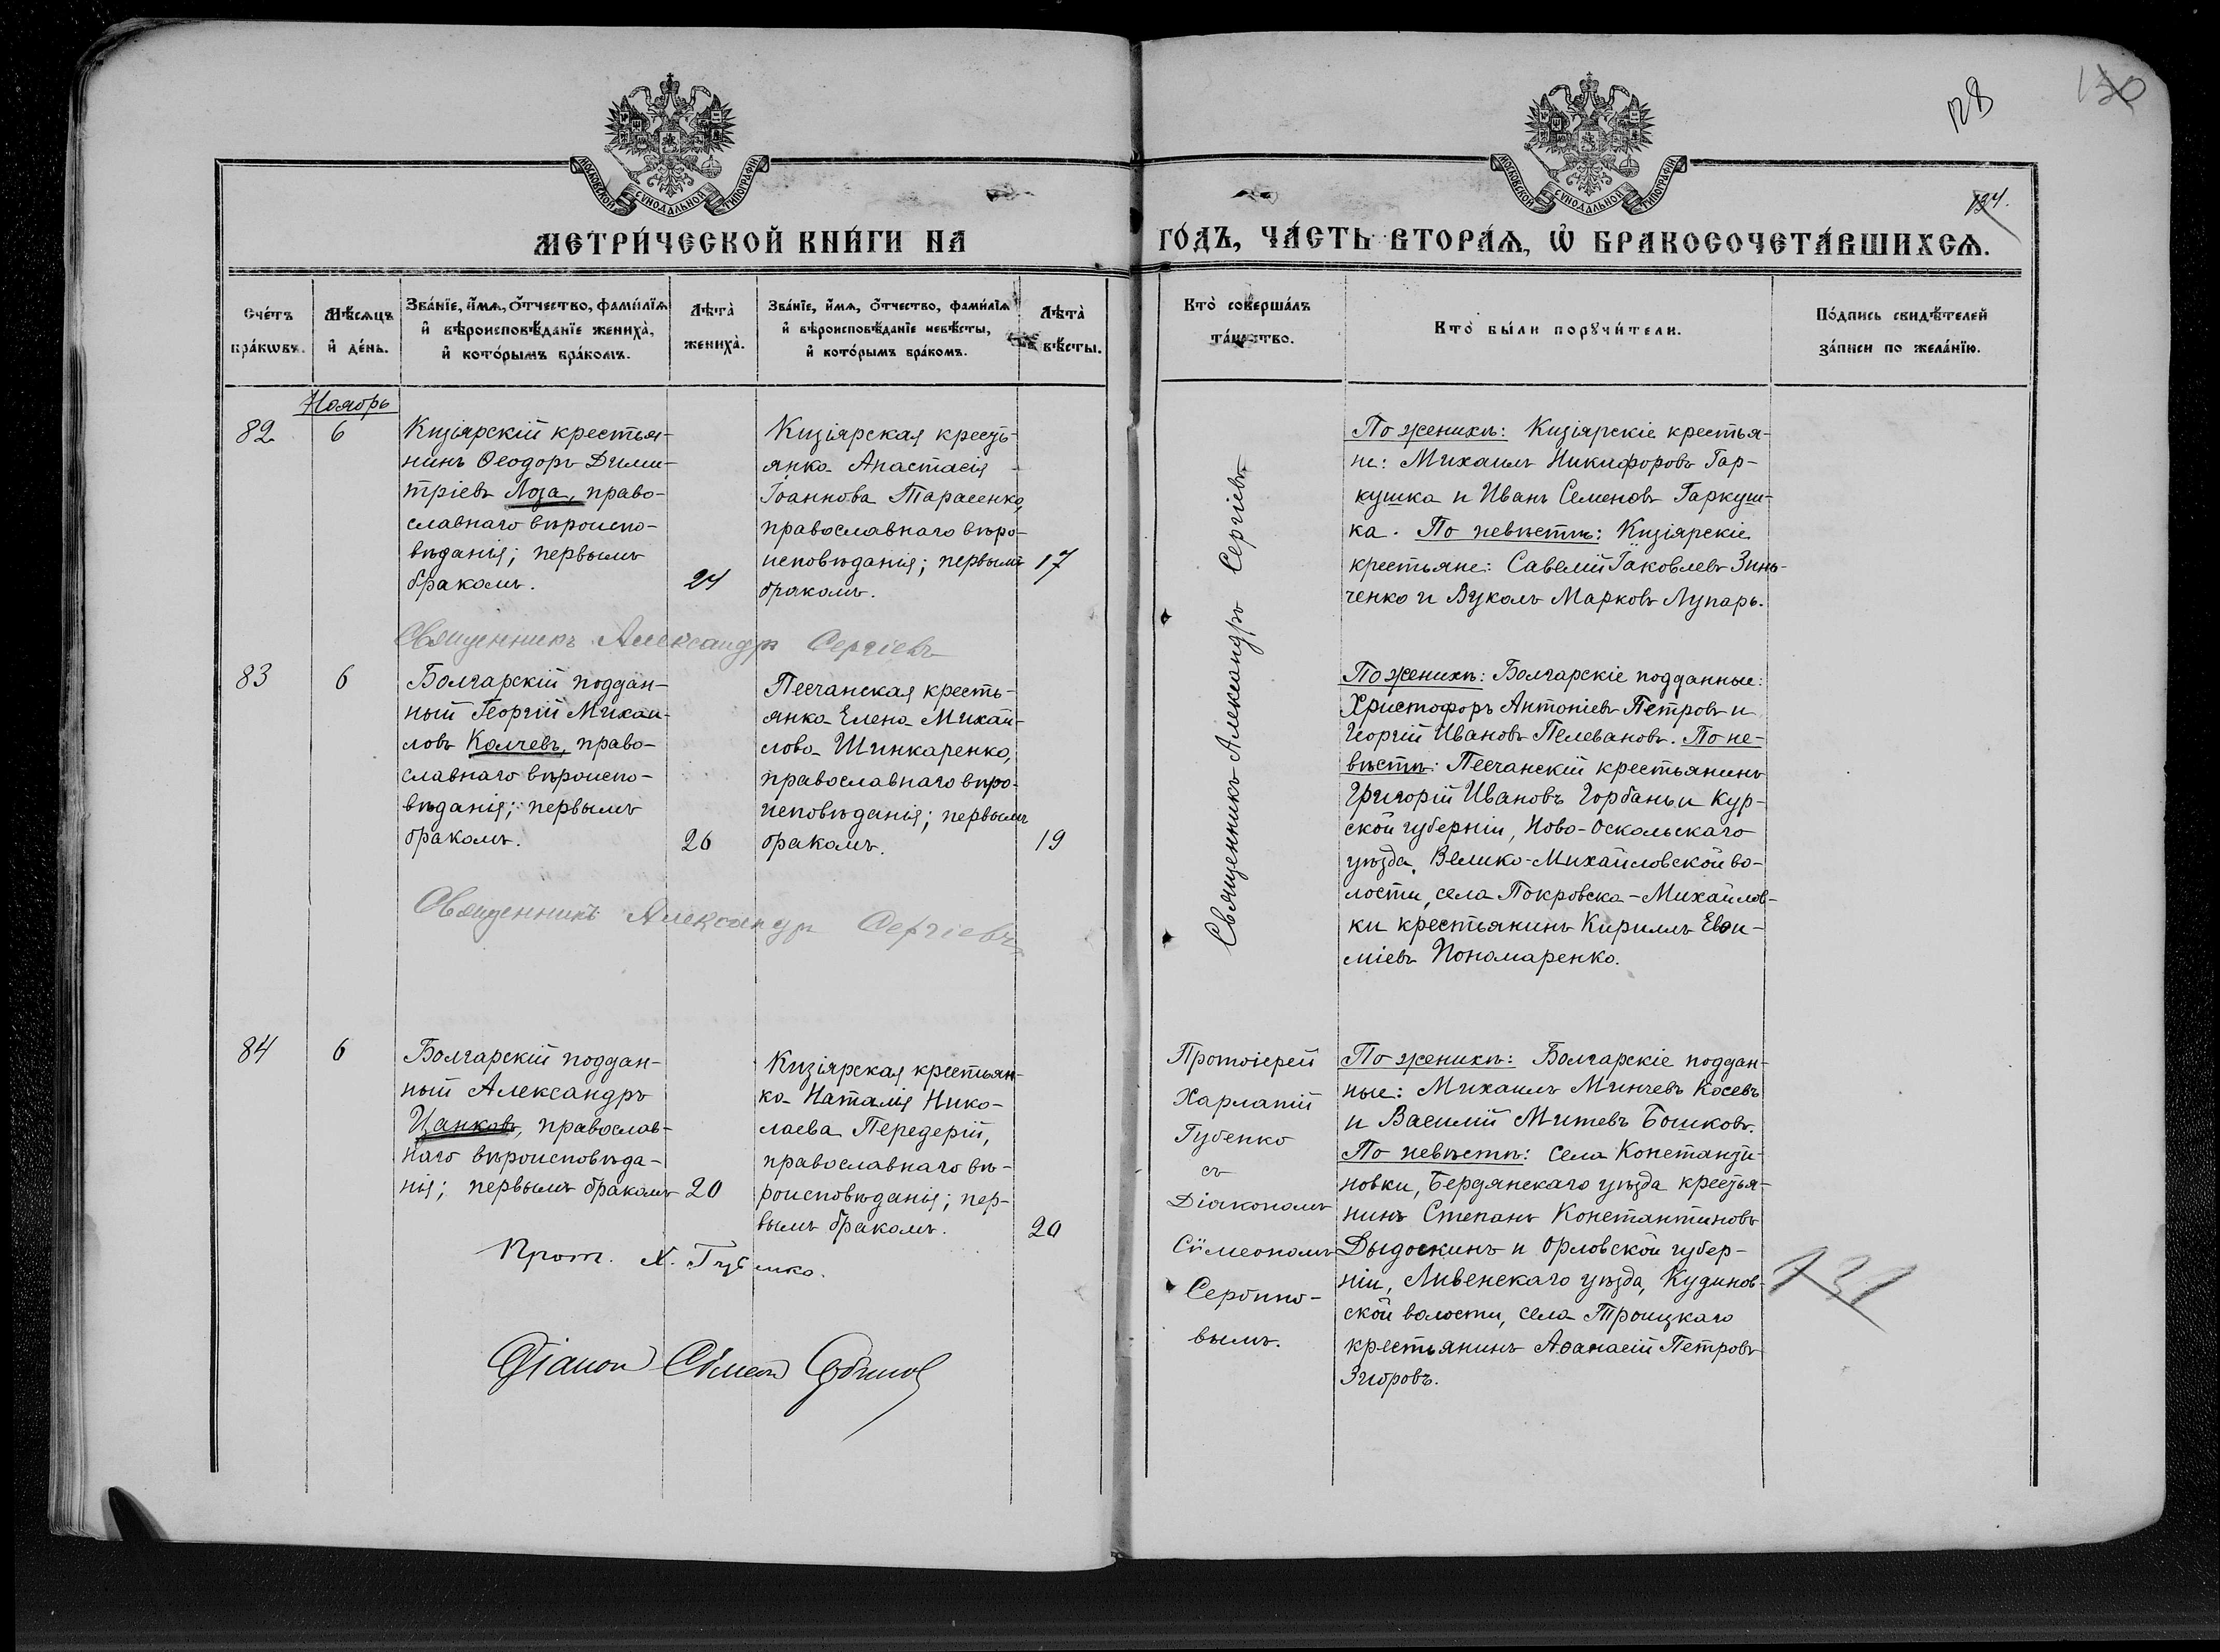 128
130
МОСКОВСКОЙ СѴНОДАЛЬНОЙ ТИПОГРАФІИ
МОСКОВСКОЙ СѴНОДАЛЬНОЙ ТИПОГРАФІИ
134.
МЕТРИ́ЧЕСКОЙ КНИ́ГИ НА
ГО́ДЪ, ЧА́СТЬ ВТОРА́Ѧ, Ѡ҆ БРАКОСОЧЕТА́ВШИХСѦ.
Сче́тъ
бра́кѡвъ.
Мѣ́сѧцъ
и҆ де́нь.
Зва́нїе, и҆́мѧ, ѻ҆́тчество, фами́лїѧ
и҆ вѣроисповѣ́данїе жениха̀,
и҆ кото́рымъ бра́комъ.
Лѣта̀
жениха̀.
Зва́нїе, и҆́мѧ, ѻ҆́тчество, фами́лїѧ
и҆ вѣроисповѣ́данїе невѣ́сты,
и҆ кото́рымъ бра́комъ.
Лѣта̀
невѣ́сты.
Кто̀ соверша́лъ
та́инство.
Кто̀ бы́ли порꙋчи́тели.
По́дпись свидѣ́телей
за́писи по жела́нїю.
Ноябрь
82
6
Кизіярскій крестья-
нинъ Ѳеодоръ Дими-
тріевъ Лоза, право-
славнаго вѣроиспо-
вѣданія; первымъ
бракомъ.
24
Кизіярская кресть-
янка Анастасія
Іоаннова Тарасенко,
православнаго вѣро-
исповѣданія; первымъ
бракомъ.
17
Священникъ Александръ Сергіевъ
Священникъ Александръ Сергіевъ
По женихѣ: Кизіярскіе крестья-
не: Михаилъ Никифоровъ Гар-
кушка и Иванъ Семеновъ Гаркуш-
ка. По невѣстѣ: Кизіярскіе
крестьяне: Савелій Іаковлевъ Зинь-
ченко и Вуколъ Марковъ Лупарь.
83
6
Болгарскій поддан-
ный Георгій Михаи-
ловъ Колчевъ, право-
славнаго вѣроиспо-
вѣданія; первымъ
бракомъ.
26
Песчанская кресть-
янка Елена Михаи-
лова Шинкаренко,
православнаго вѣро-
исповѣданія; первымъ
бракомъ.
19
Священникъ Александръ Сергіевъ
По женихѣ: Болгарскіе подданные:
Христофоръ Антоніевъ Петровъ и
Георгій Ивановъ Пелевановъ. По не-
вѣстѣ: Песчанскій крестьянинъ
Григорій Ивановъ Горбань и Кур-
ской губерніи, Ново-Оскольскаго
уѣзда, Велико-Михайловской во-
лости, села Покровска-Михайлов-
ки крестьянинъ Кириллъ Евѳи-
міевъ Пономаренко.
84
6
Болгарскій поддан-
ный Александръ
Цанковъ, православ-
наго вѣроисповѣда-
нія; первымъ бракомъ
20
Кизіярская крестьян-
ка Наталія Нико-
лаева Передерій,
православнаго вѣ-
роисповѣданія; пер-
вымъ бракомъ.
20
Прот. Х. Губенко.
Діаконъ Сѵмеонъ Сербиновъ
Протоіерей
Харлапій
Губенко
съ
Діакономъ
Сѵмеономъ
Сербино-
вымъ.
По женихѣ: Болгарскіе поддан-
ные: Михаилъ Минчевъ Косевъ
и Василій Митевъ Бошковъ.
По невѣстѣ: села Константи-
новки, Бердянскаго уѣзда крестья-
нинъ Степанъ Константиновъ
Дыдоскинъ и Орловской губер-
ніи, Ливенскаго уѣзда, Кудинов-
ской волости, села Троицкаго
крестьянинъ Аѳанасій Петровъ
Згибровъ.
131